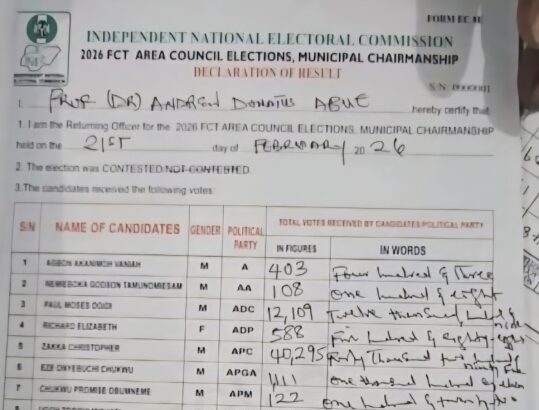 FORM EC 8E
INDEPENDENT NATIONAL ELECTORAL COMMISSION
2026 FCT AREA COUNCIL ELECTIONS, MUNICIPAL CHAIRMANSHIP
DECLARATION OF RESULT
INDEPENDENT NATIONAL
ELECTORAL COMMISSION
S/N 0000001
I, PROF (DR) ANDREW DONATUS ABUE hereby certify that
1. I am the Returning Officer for the 2026 FCT AREA COUNCIL ELECTIONS, MUNICIPAL CHAIRMANSHIP
held on the 21ST day of FEBRUARY 2026
2. The election was CONTESTED/NOT CONTESTED
3. The candidates received the following votes:
S/N NAME OF CANDIDATES GENDER POLITICAL PARTY TOTAL VOTES RECEIVED BY CANDIDATES/POLITICAL PARTY
IN FIGURES IN WORDS
1 M A 403 Four hundred & Three
2 M AA 108 One hundred & eight
3 PAUL MOSES M ADC 12,109 Twelve thousand, hundred & nine
4 RICHARD ELIZABETH F ADP 588 Five hundred & eighty-eight
5 ZAKKA CHRISTOPHER M APC 40,295 Forty Thousand two hundred & ninety five
6 EZE ONYEBUCHI CHUKWU M APGA 1,111 One thousand hundred & eleven
7 CHUKWU PROMISE M APM 122 One hundred & twenty two